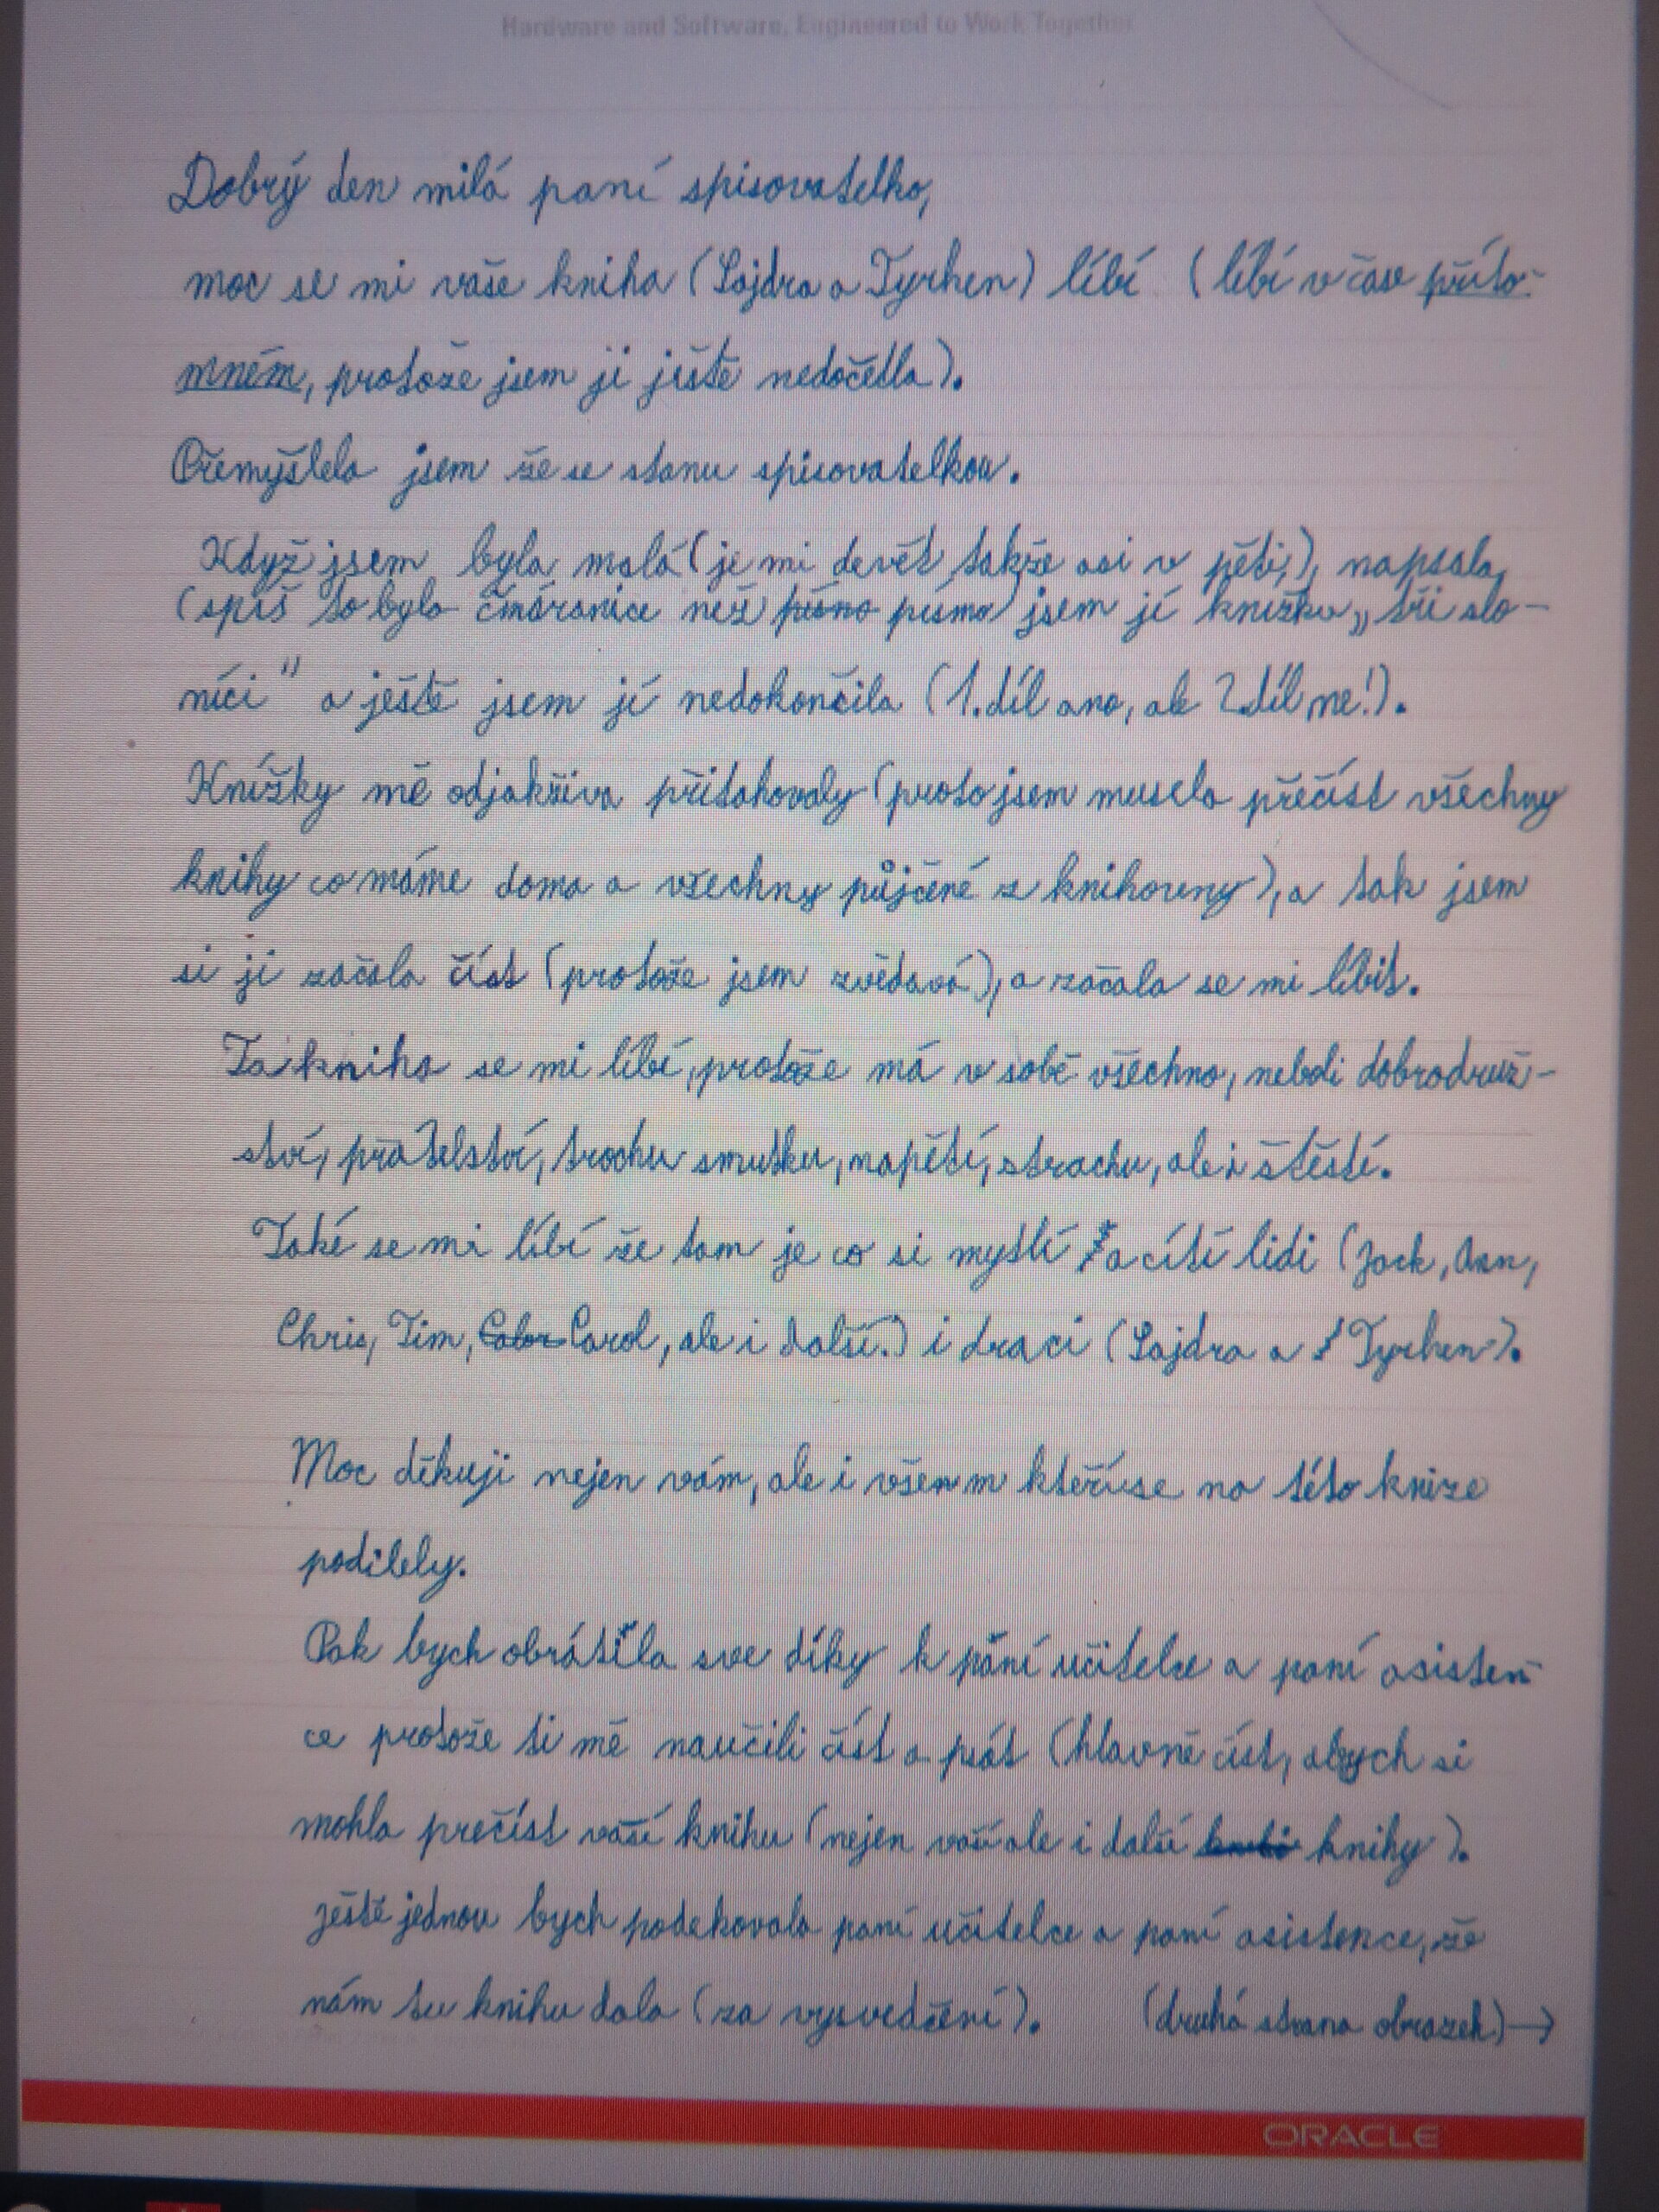 Hardware and Software, Engineered to Work Together
Dobrý den milá paní spisovatelko,
moc se mi vaše kniha (Sajdra a Tyrhen) líbí (líbí v čase příto-
mném, protože jsem ji ještě nedočetla).
Přemýšlela jsem že se stanu spisovatelkou.
Když jsem byla malá (je mi devět takže asi v pěti,), napsala,
(spíš to byla čmáranice než písmo písmo) jsem jí knížku „tři slo-
níci" a ještě jsem jí nedokončila (1. díl ano, ale 2 díl ne!).
Knížky mě odjakživa přitahovaly (proto jsem musela přečíst všechny
knihy co máme doma a všechny půjčené z knihovny), a tak jsem
si ji začala číst (protože jsem zvědavá), a začala se mi líbit.
Ta kniha se mi líbí, protože má v sobě všechno, neboli dobrodruž-
ství, přátelství, trochu smutku, napětí, strachu, ale i štěstí.
Také se mi líbí že tam je co si myslí a cítí lidi (Jack, Ann,
Chris, Tim, Carol, ale i další.) i draci (Sajdra a Tyrhen).
Moc děkuji nejen vám, ale i všem kteří se na této knize
podílely.
Pak bych obrátila sve díky k paní učitelce a paní asisten-
ce protože ti mě naučili číst a psát (hlavně číst, abych si
mohla prečíst vaší knihu (nejen vaší ale i další knihy).
ještě jednou bych podekovala paní učitelce a paní asistence, že
nám tu knihu dala (za vysvedčení). (druhá strana obrazek) →
ORACLE